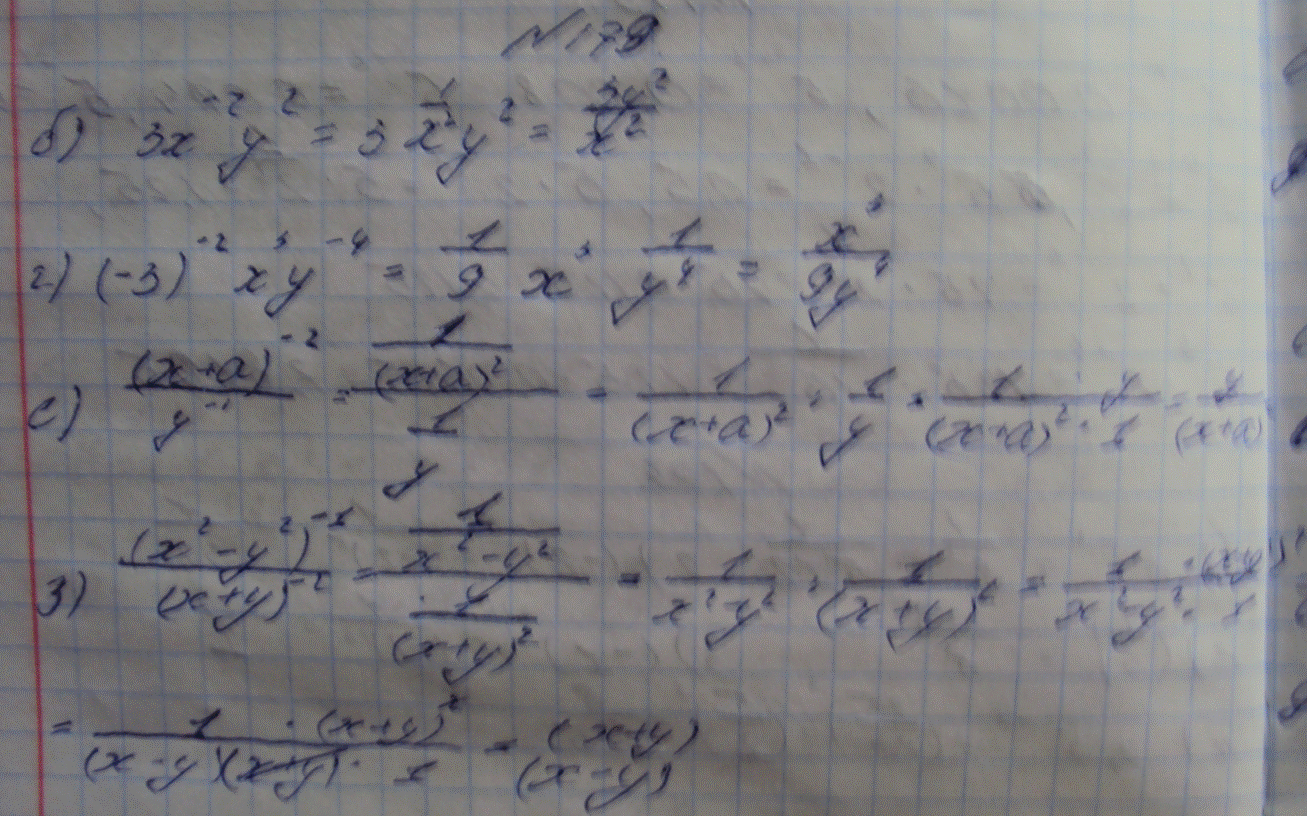 №179
б) 3x⁻²y² = 3 1/x² y² = 3y²/x²
г) (-3)⁻² x⁵ y⁻⁴ = 1/9 x⁵ 1/y⁴ = x⁵/9y⁴
е) (x+a)⁻²/y⁻¹ = 1/(x+a)² / 1/y = 1/(x+a)² : 1/y = 1 · y/(x+a)² · 1 = y/(x+a)
з) (x²-y²)⁻¹/(x+y)⁻² = 1/x²-y² / 1/(x+y)² = 1/x²-y² : 1/(x+y)² = 1 · (x+y)²/x²-y² · 1
= 1 · (x+y)²/(x-y)(x+y) · 1 = (x+y)/(x-y)